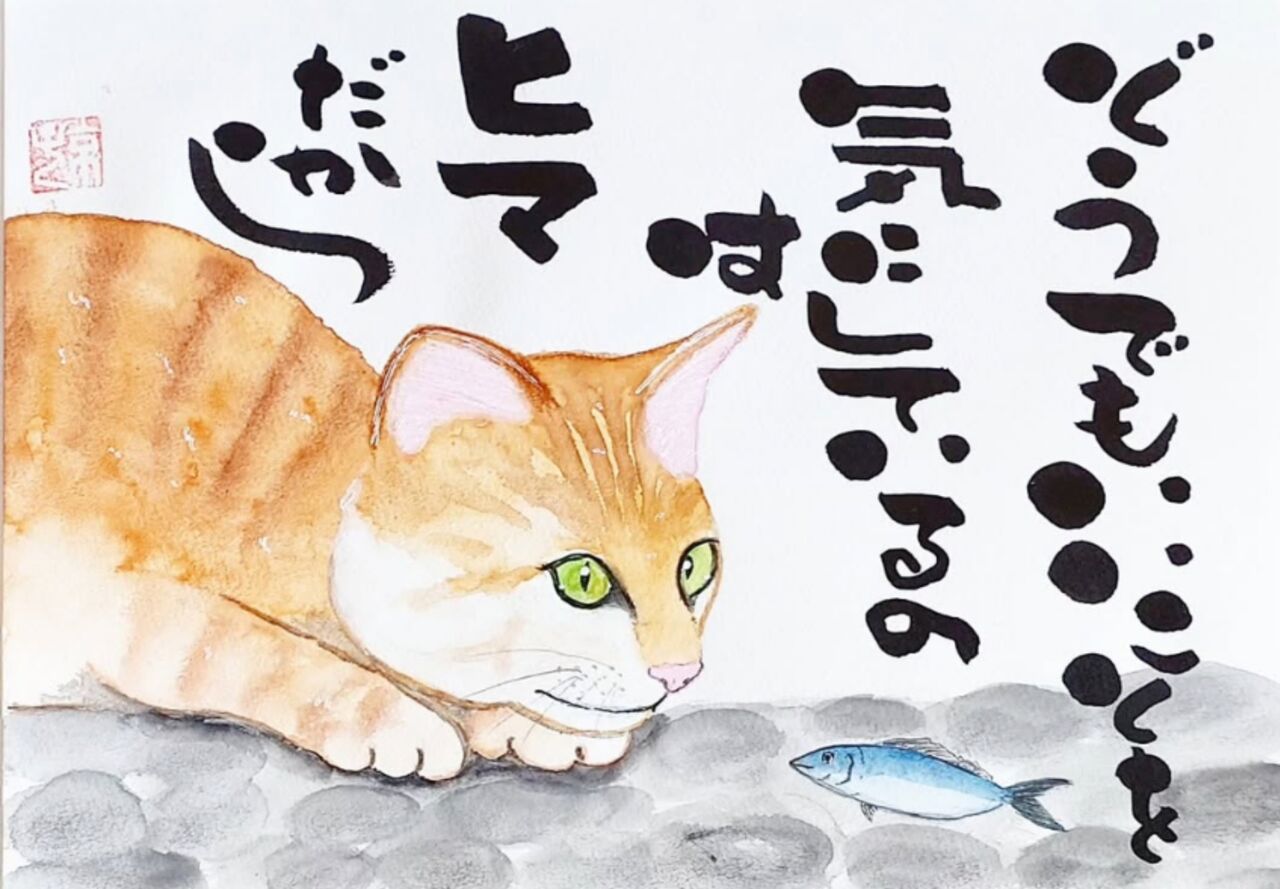 どうでもいいことを
気にしているの
は
ヒマ
だから